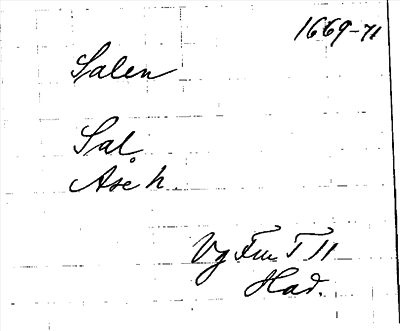 1669-71
Salen
Sal
Åse h.
Vg Fru T 11
Had.